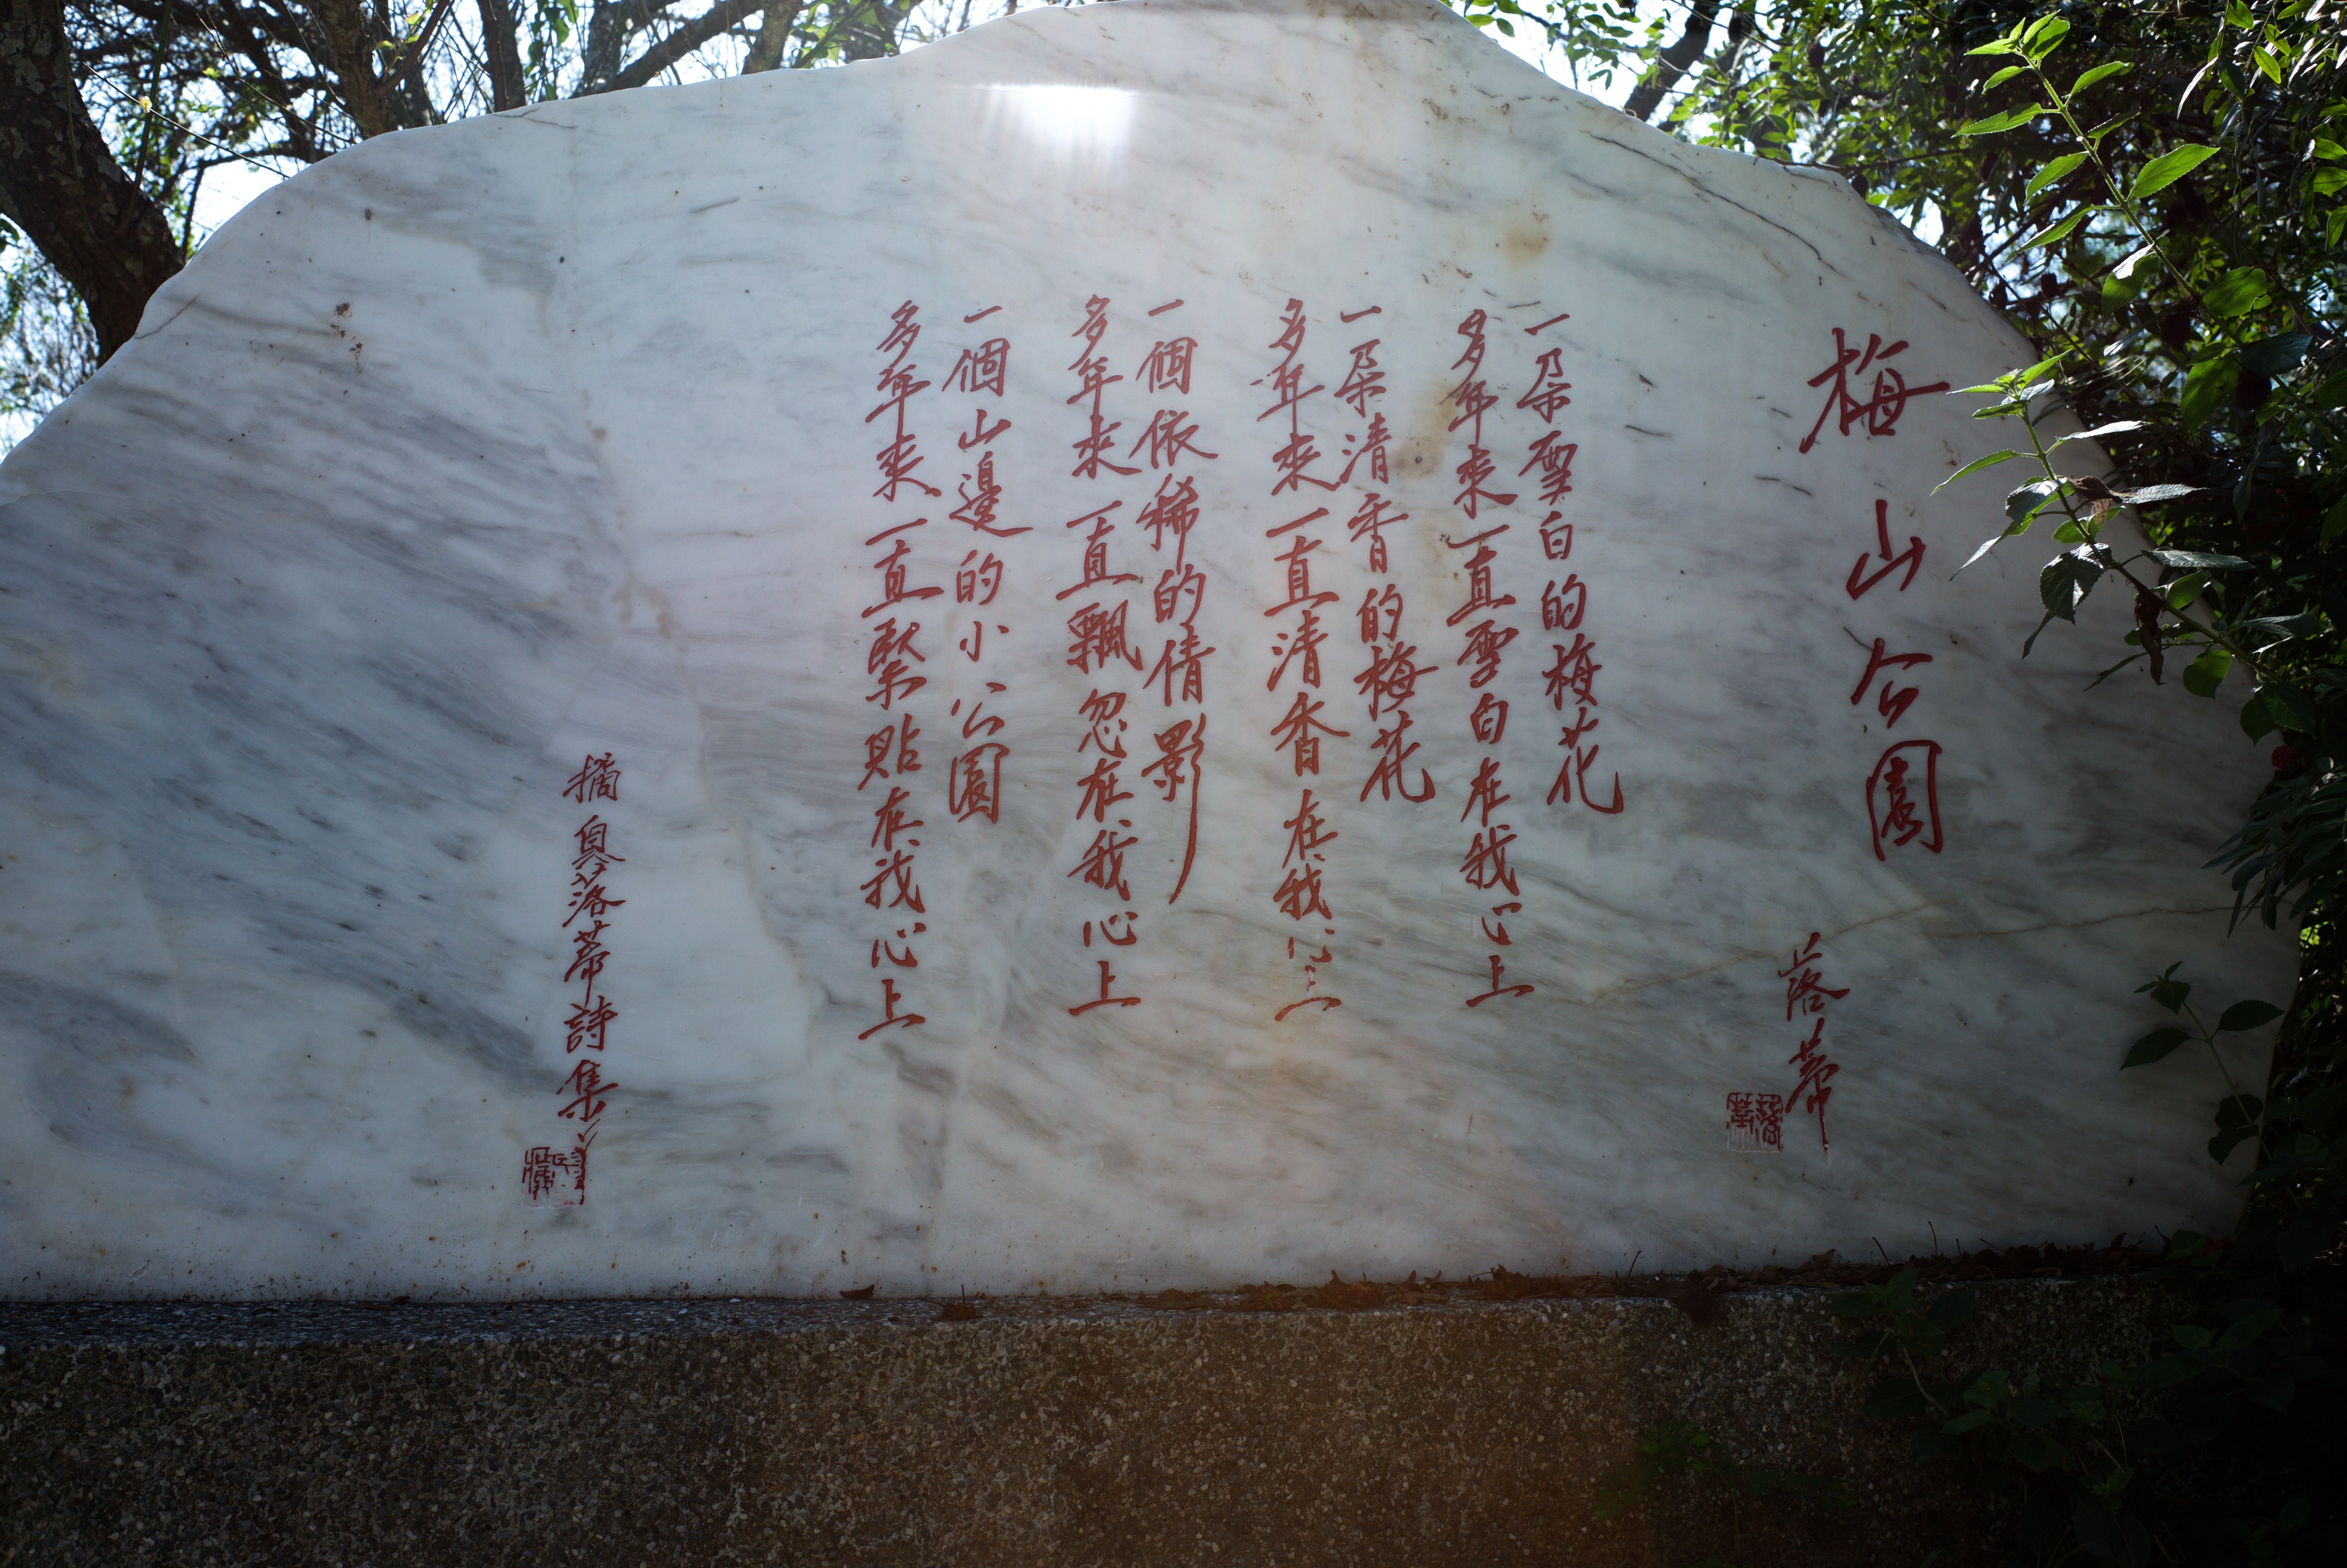 梅山公園
落蒂
一朵雪白的梅花
多年來一直雪白在我心上
一朵清香的梅花
多年來一直清香在我心上
一個依稀的倩影
多年來一直飄忽在我心上
一個山邊的小公園
多年來一直緊貼在我心上
摘落蒂詩集